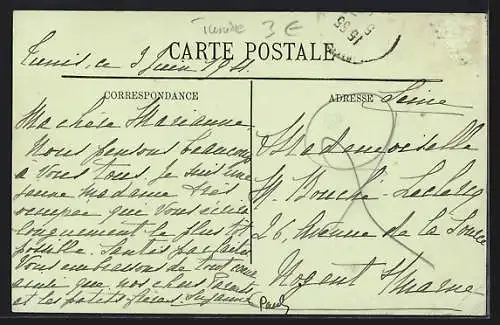 Tunisie 3 €
CARTE POSTALE
Tunis, ce 3 Juin 1921.
CORRESPONDANCE
ADRESSE
Ma chère Marianne,
Nous pensons beaucoup
à vous tous. Je suis une
jeune madame très
occupée que vous écrira
longuement le plus tôt
possible. Santés parfaites
Vous embrassons de tout cœur
ainsi que nos chers parents
et les petits frères. Suzanne
Paul
Seine
Mademoiselle
M. Bouché-Leclercq
26, Avenue de la Source
Nogent s/Marne